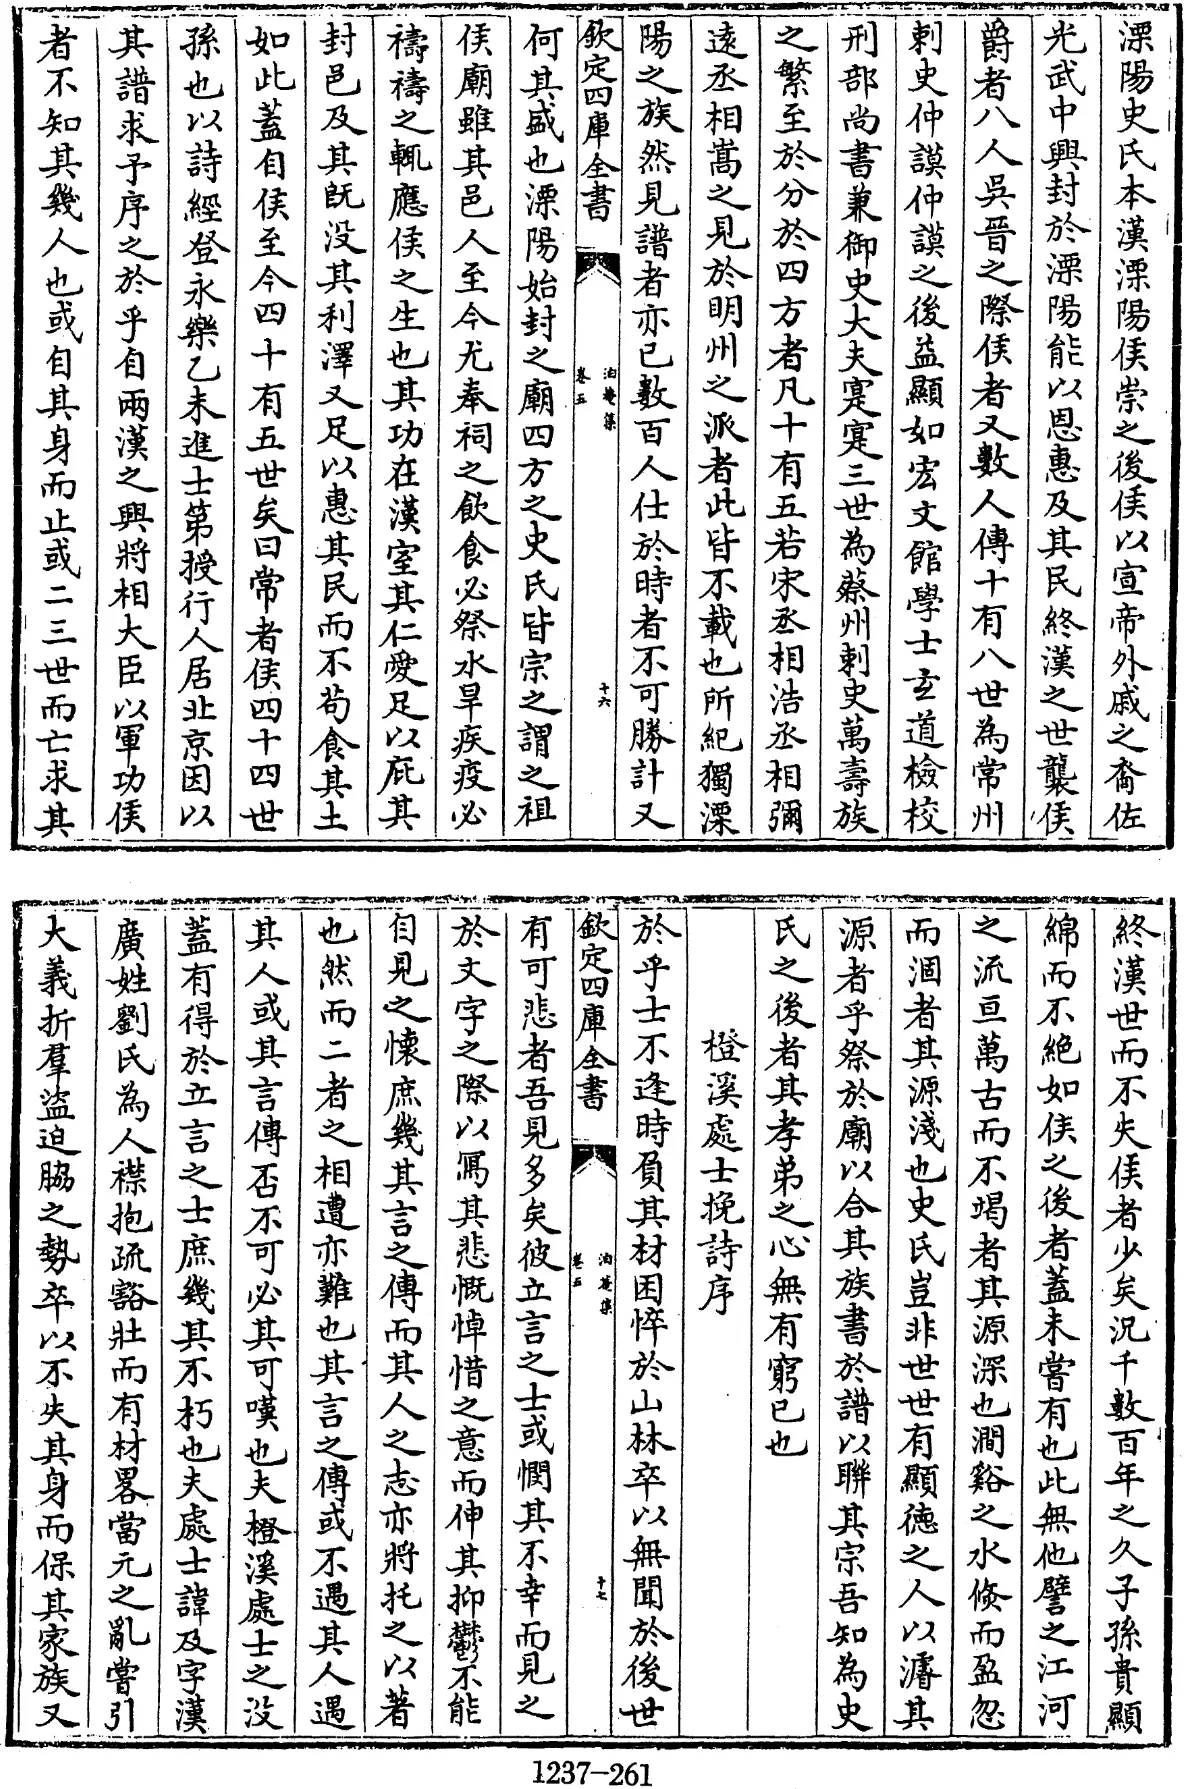 溧陽史氏本漢溧陽侯崇之後侯以宣帝外戚之裔佐
光武中興封於溧陽能以恩惠及其民終漢之世襲侯
爵者八人吳晉之際侯者又數人傳十有八世為常州
刺史仲謨仲謨之後益顯如宏文館學士玄道檢校
刑部尚書兼御史大夫寔寔三世為蔡州刺史萬壽族
之繁至於分於四方者凡十有五若宋丞相浩丞相彌
遠丞相嵩之見於明州之派者此皆不載也所紀獨溧
陽之族然見譜者亦已數百人仕於時者不可勝計又
欽定四庫全書
泊菴集
卷五
十六
何其盛也溧陽始封之廟四方之史氏皆宗之謂之祖
侯廟雖其邑人至今尤奉祠之飲食必祭水旱疾疫必
禱禱之輒應侯之生也其功在漢室其仁愛足以庇其
封邑及其既没其利澤又足以惠其民而不茍食其土
如此蓋自侯至今四十有五世矣曰常者侯四十四世
孫也以詩經登永樂乙未進士第授行人居北京因以
其譜求予序之於乎自兩漢之興將相大臣以軍功侯
者不知其幾人也或自其身而止或二三世而亡求其
終漢世而不失侯者少矣況千數百年之久子孫貴顯
綿而不絶如侯之後者蓋未嘗有也此無他譬之江河
之流亘萬古而不竭者其源深也澗谿之水倐而盈忽
而涸者其源淺也史氏豈非世世有顯德之人以濬其
源者乎祭於廟以合其族書於譜以聯其宗吾知為史
氏之後者其孝弟之心無有窮已也
橙溪處士挽詩序
於乎士不逢時負其材困悴於山林卒以無聞於後世
欽定四庫全書
泊菴集
卷五
十七
有可悲者吾見多矣彼立言之士或憫其不幸而見之
於文字之際以寫其悲慨悼惜之意而伸其抑鬱不能
自見之懷庶幾其言之傳而其人之志亦將托之以著
也然而二者之相遭亦難也其言之傳或不遇其人遇
其人或其言傳否不可必其可嘆也夫橙溪處士之没
蓋有得於立言之士庶幾其不朽也夫處士諱及字漢
廣姓劉氏為人襟抱疏豁壯而有材畧當元之亂嘗引
大義折羣盜迫脇之勢卒以不失其身而保其家族又
1237-261